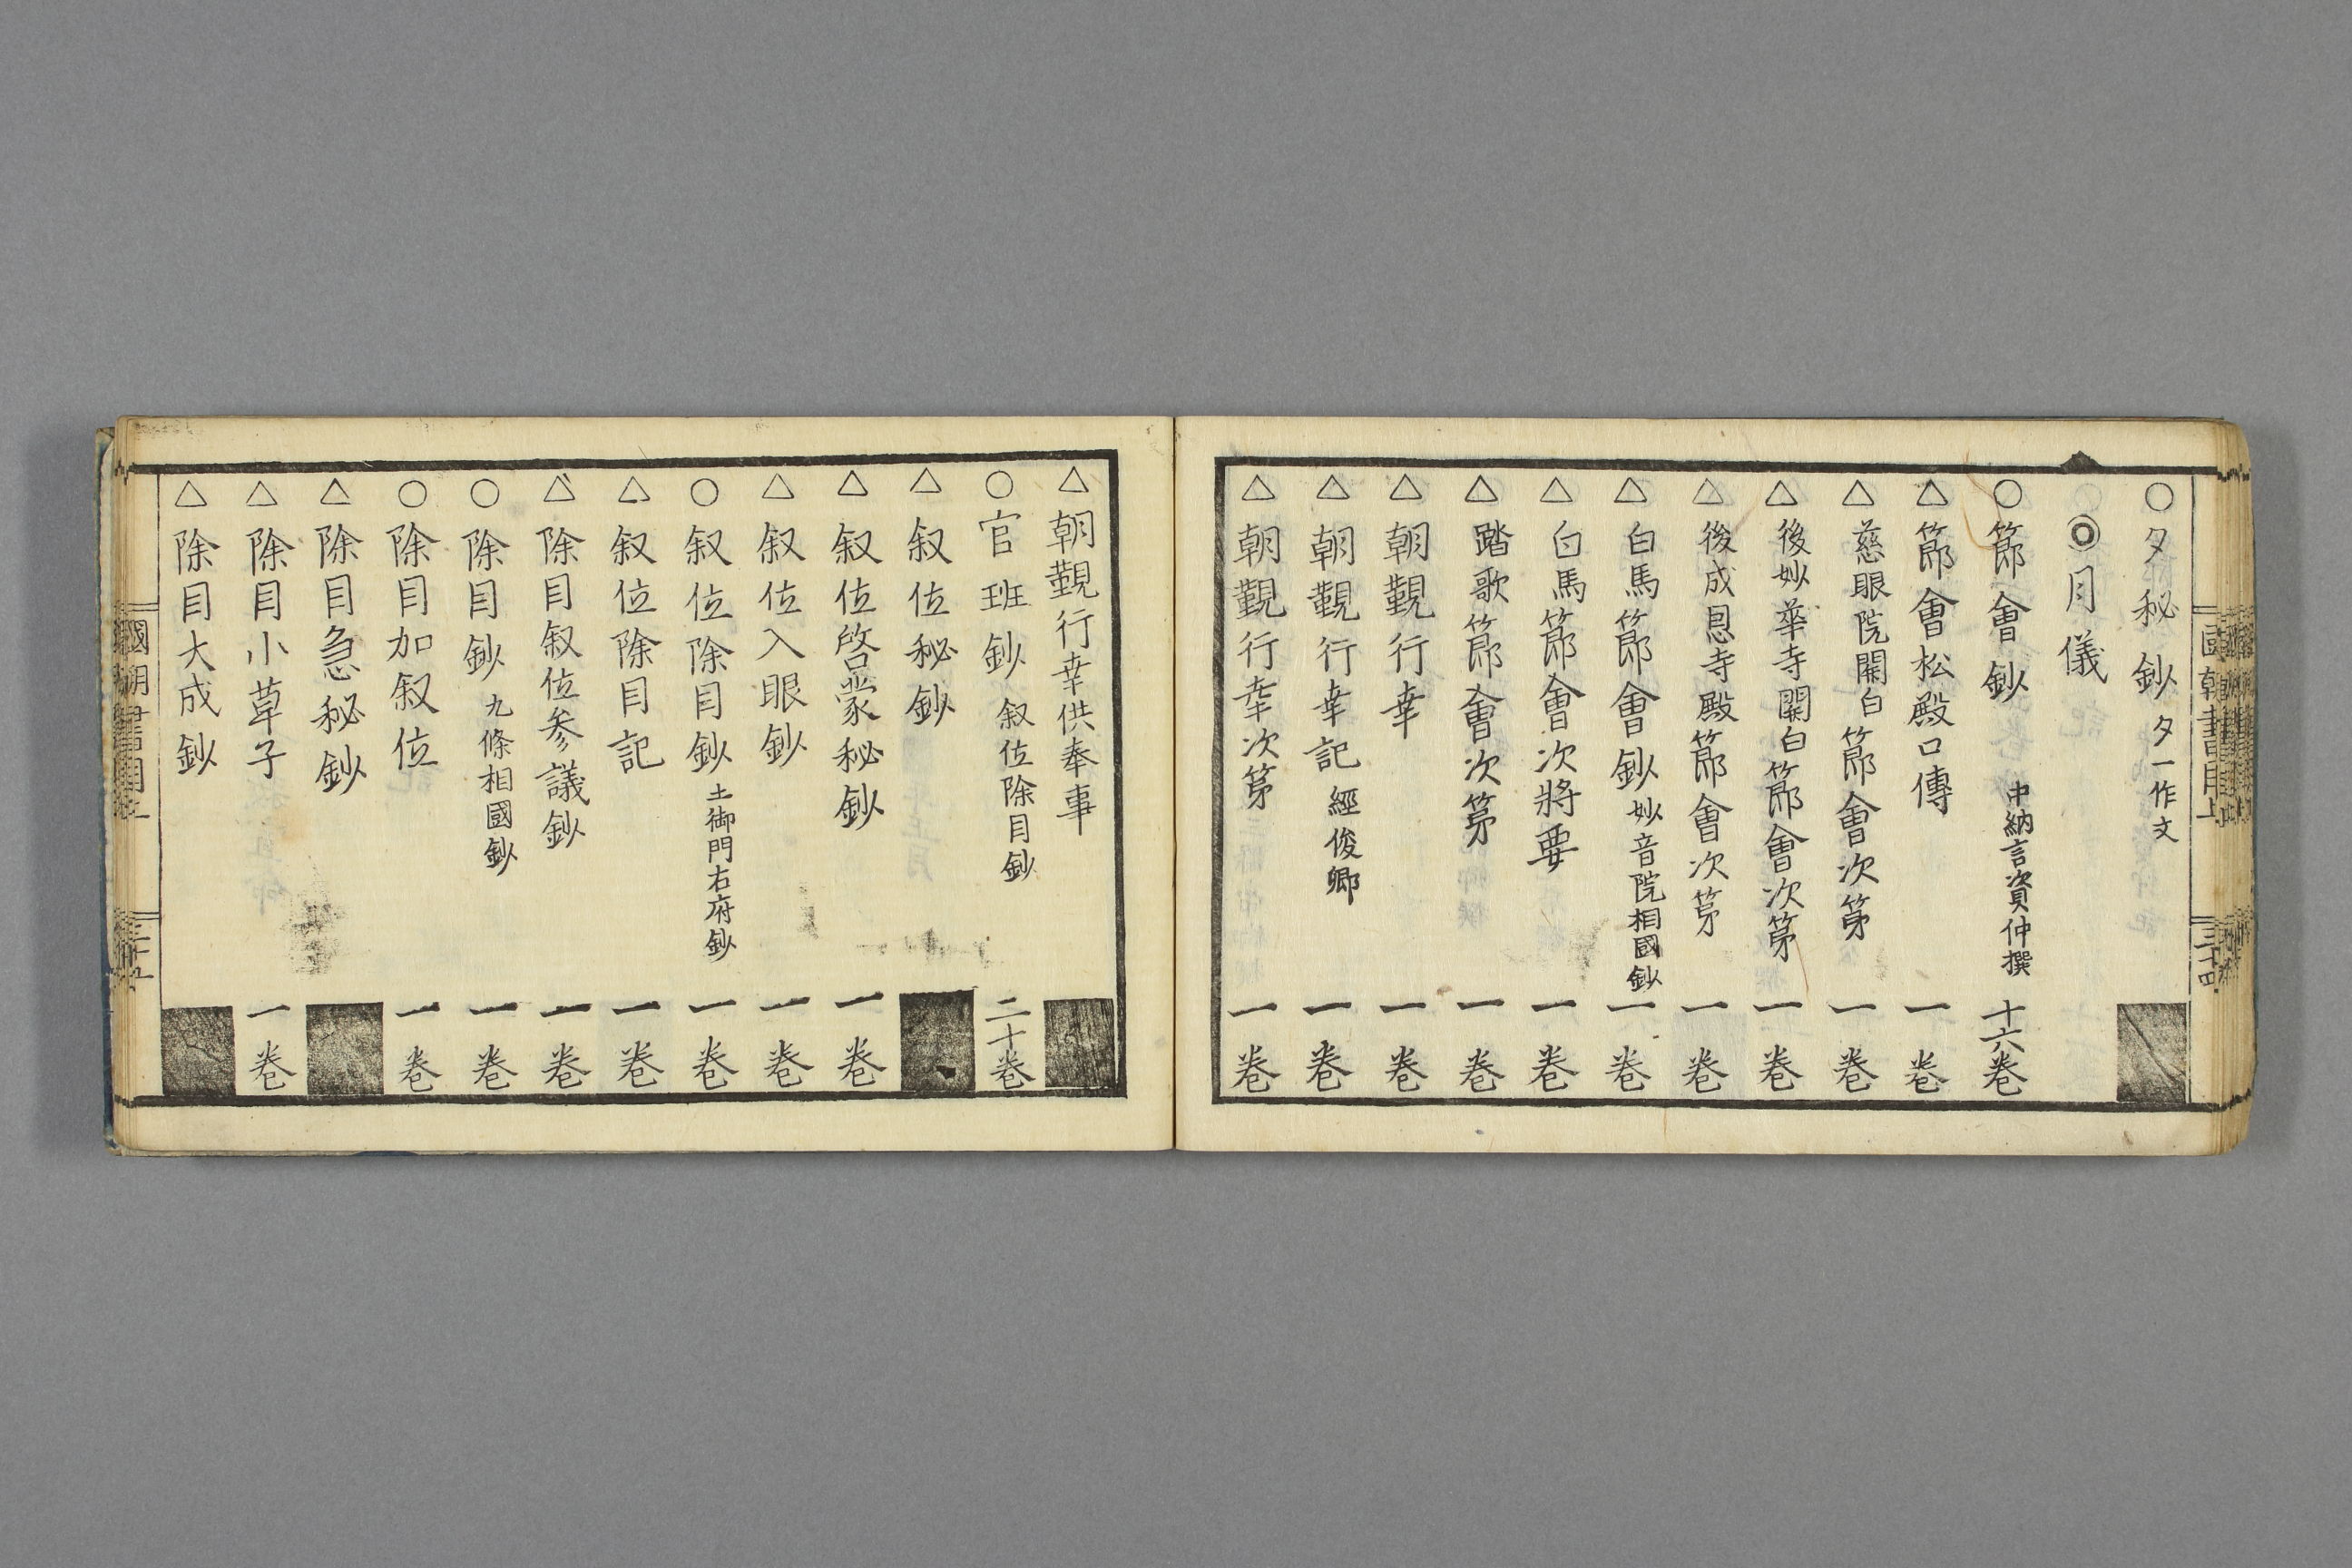 國朝書目上
三十四
○夕秘鈔 夕一作文
◎月儀
○節會鈔 中納言資仲撰 十六卷
△節會松殿口傳 一卷
△慈眼院關白節會次第 一卷
△後妙華寺關白節會次第 一卷
△後成恩寺殿節會次第 一卷
△白馬節會鈔 妙音院相國鈔 一卷
△白馬節會次將要 一卷
△踏歌節會次第 一卷
△朝覲行幸 一卷
△朝覲行幸記 經俊卿 一卷
△朝覲行幸次第 一卷
△朝覲行幸供奉事
○官班鈔 叙位除目鈔 二十卷
△叙位秘鈔
△叙位啓蒙秘鈔 一卷
△叙位入眼鈔 一卷
○叙位除目鈔 土御門右府鈔 一卷
△叙位除目記 一卷
△除目叙位参議鈔 一卷
○除目鈔 九條相國鈔 一卷
○除目加叙位 一卷
△除目急秘鈔
△除目小草子 一卷
△除目大成鈔